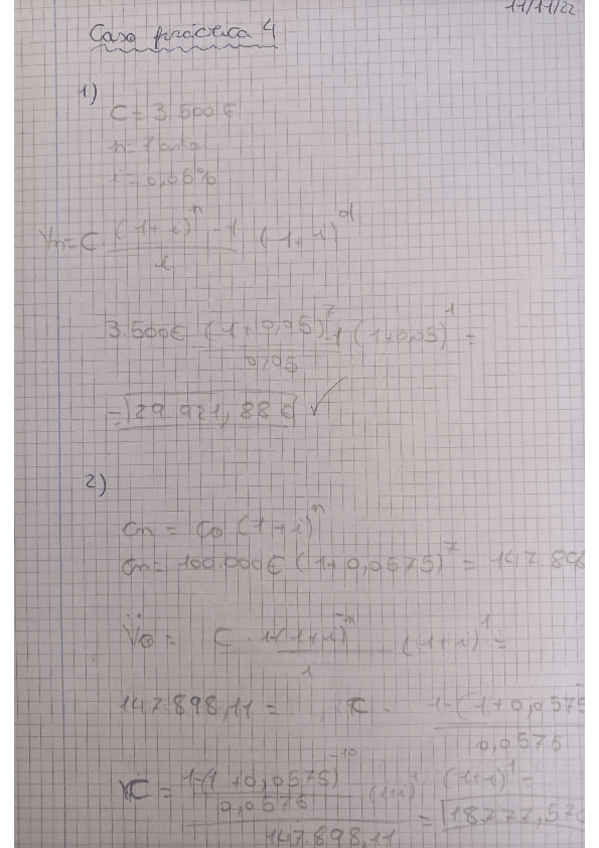 17/11/22
Caso práctico 4
1)
C = 3.500€
n = 7 año
i = 0,05%
Vn = C · (1+i)^n - 1 / i (1+i)^d
3.500€ (1+0,05)^7 - 1 / 0,05 (1+0,05)^1 =
= 29.921,88€ ✓
2)
Cn = Co (1+i)^n
Cn = 100.000€ (1+0,0575)^7 = 147.898
V̈o = C · 1-(1+i)^-n / i (1+i)^1 =
147.898,11 = C · 1-(1+0,0575 / 0,0575
C = 1-(1+0,0575)^-10 / 0,0575 (1+i)^1 (1+i)^1 = / 147.898,11 = 18.777,57